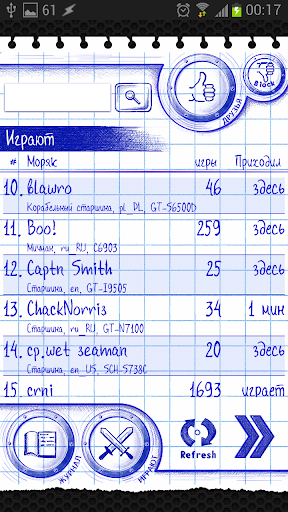 61 00:17
Block
ДРУЗЬЯ
Играют
# Моряк игры Приходил
10. blawro 46 здесь
Корабельный старшина, pl_PL, GT-S6500D
11. Boo! 259 здесь
Мичман, ru_RU, C6903
12. Captn Smith 25 здесь
Старшина, en, GT-I9505
13. ChackNorris 34 1 мин
Старшина, ru_RU, GT-N7100
14. cp.wet seaman 20 здесь
Старшина, en_US, SCH-S738C
15. crni 1693 играет
ЖУРНАЛ ИГРАЮТ Refresh